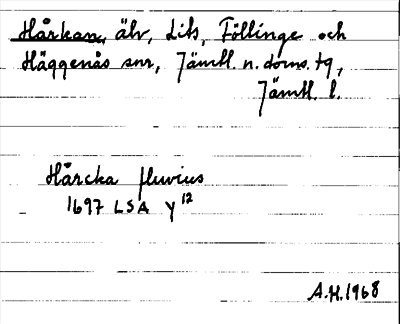 Hårkan, älv, Lits, Föllinge och
Häggenås snr, Jämtl. n. doms. tg,
Jämtl. l.
Hårcka fluvius
1697 LSA Y 12
A.H. 1968